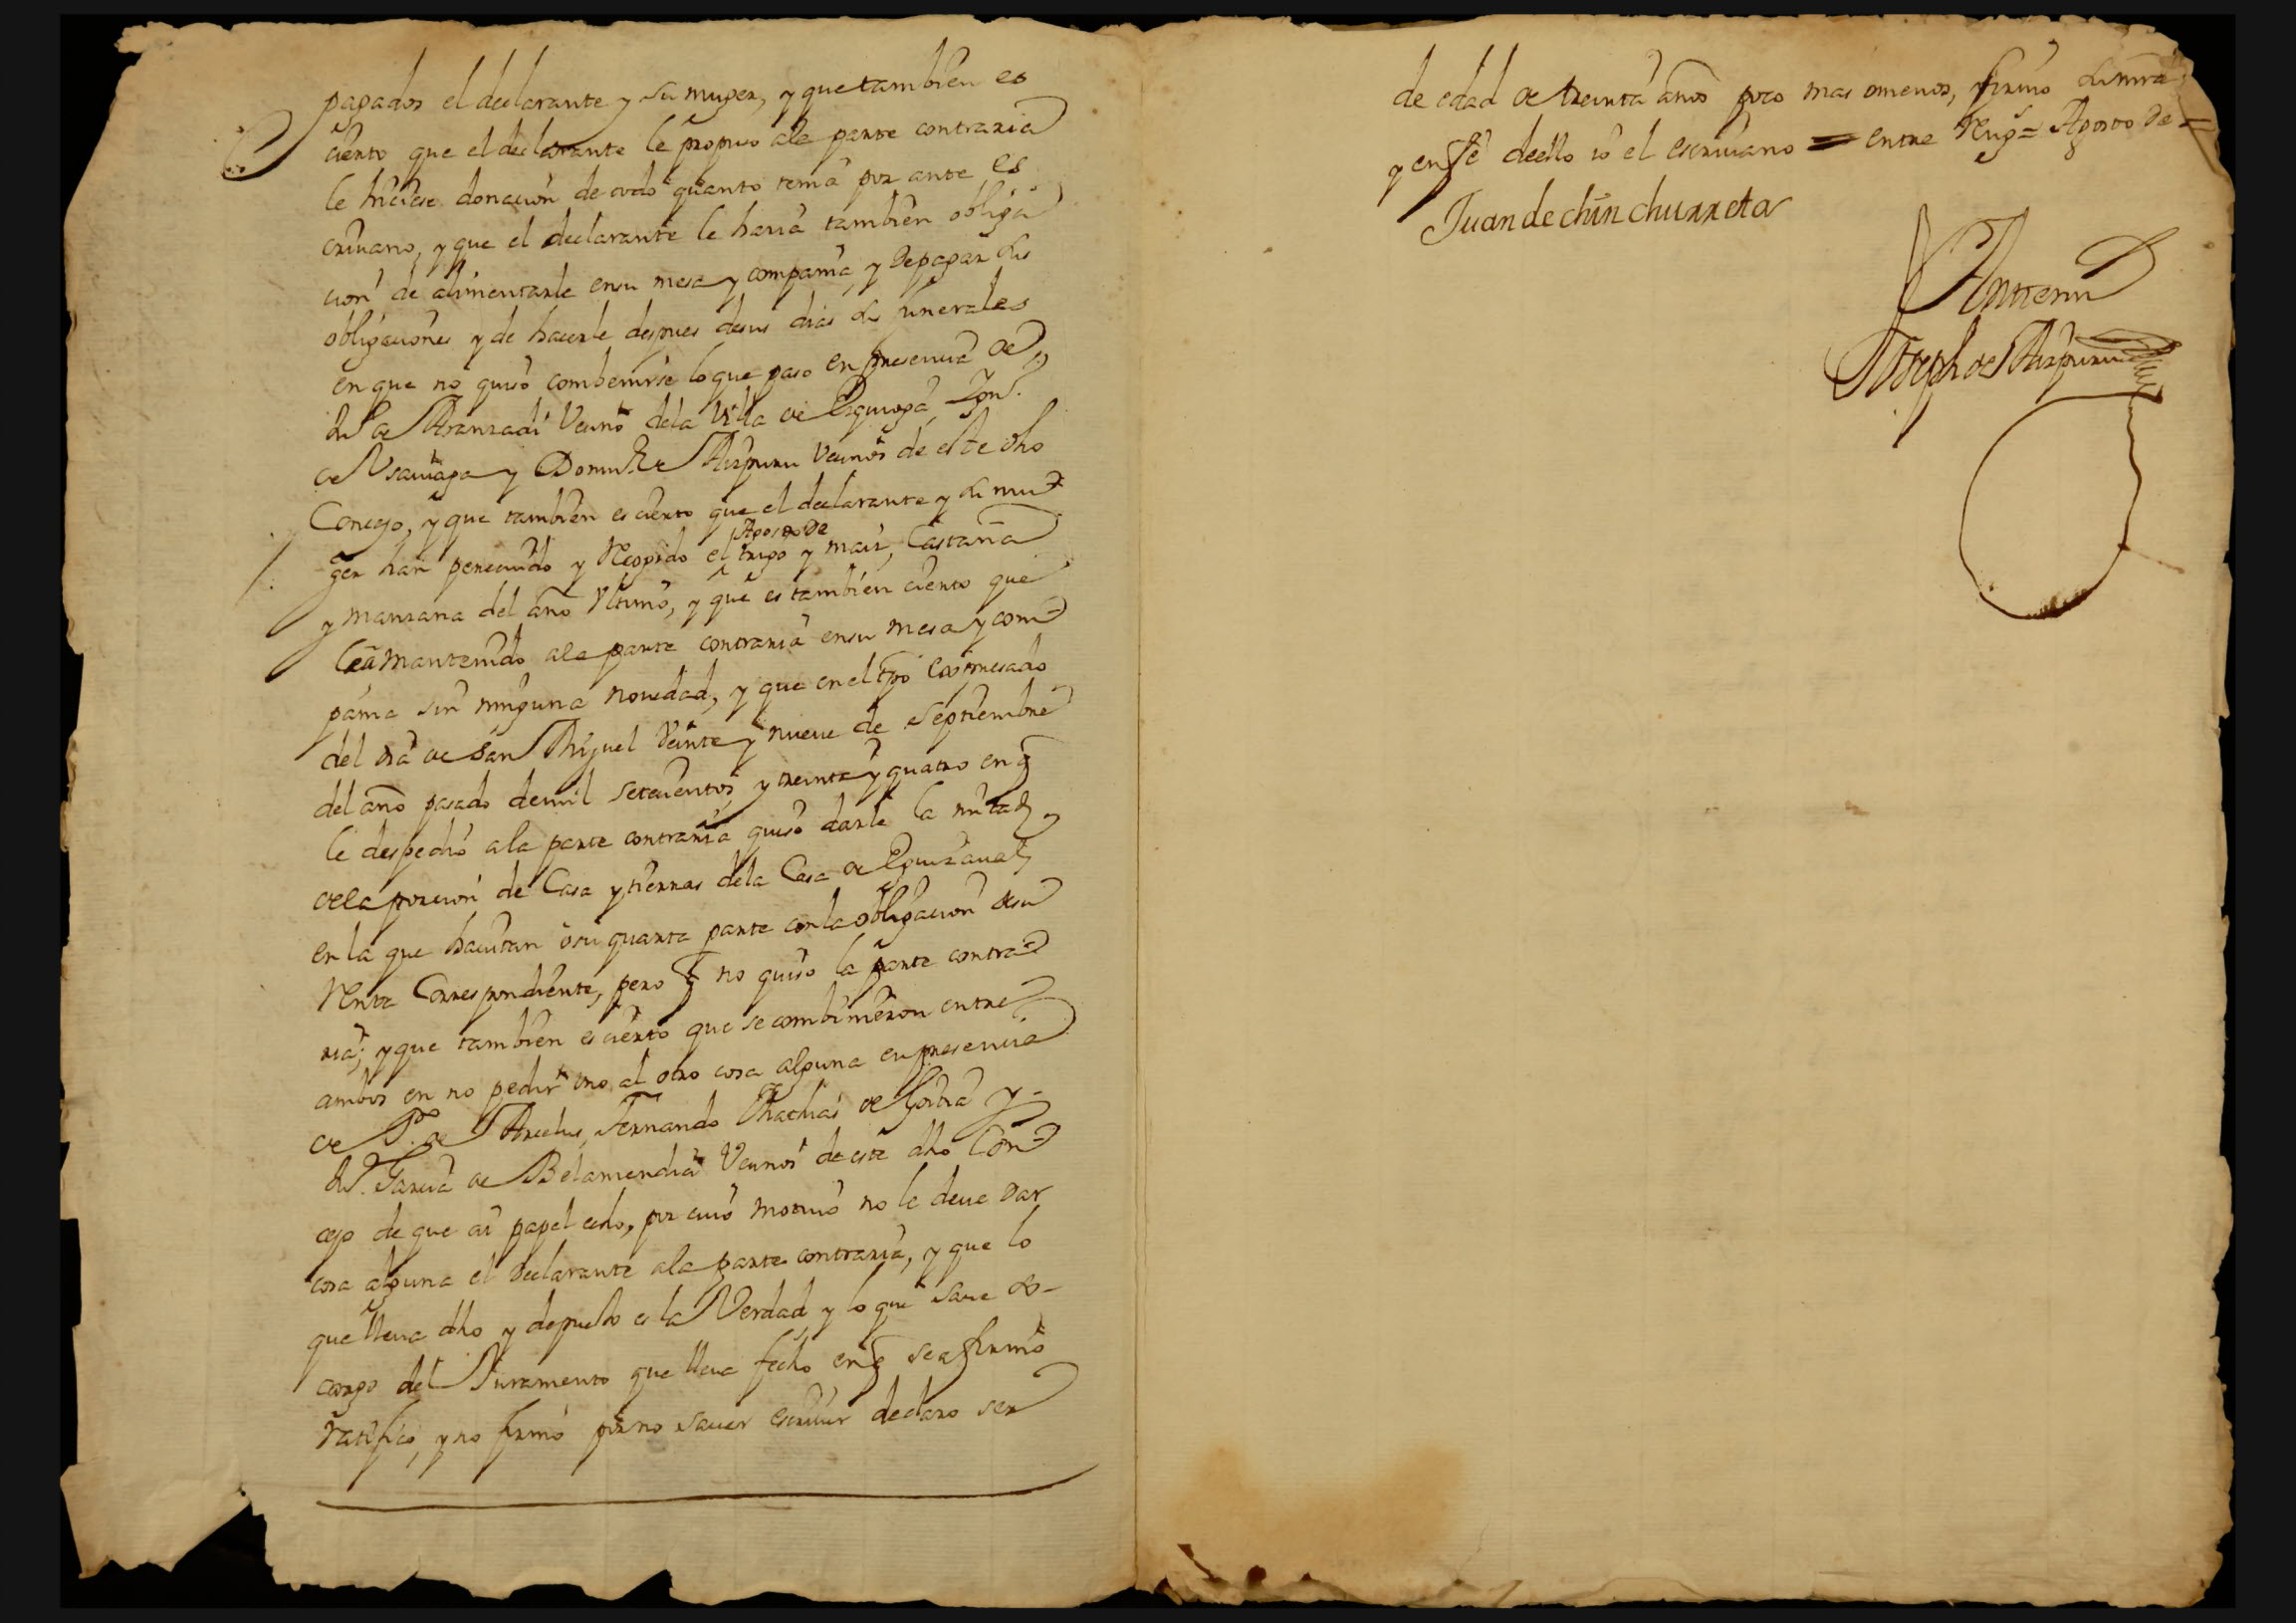 pagados el declarante y su muger, y que tambien es
cierto que el declarante le propuso ala parte contraria
le hiciese donacion de todo quanto tenia por ante es
criuano, y que el declarante le haria tambien obliga
cion de alimentarle ensu mesa y compania, y depagar sus
obligaciones y de hacerle despues desus dias los funerales
en que no quiso combenirse loque paso en presencia de
de Aranzadi Vecino dela Villa de Ezquioga
de Vsauiaga y Domingo de Aizpuru vecinos de este dho
Concejo, y que tambien es cierto que el declarante y su mu
Agosto de
ger han perciuido y Recogido el trigo y maiz, Castaña
y manzana del año Vltimo, y que es tambien cierto que
lea mantenido ala parte contraria ensu mesa y com
pania sin ninguna nouedad, y que en el tpo expresado
del dia de San Miguel Veinte y nueue de septiembre
del año pasado demil setecientos y treinta y quatro en q
le despedio ala parte contraria quiso darle la mitad
dela porcion de Casa y tierras dela Casa de Eguizaual
en la que hauitan o su quarta parte con la obligacion desu
Renta Correspondiente, pero q no quiso la parte contra
ria; y que tambien es cierto que se combinieron entre
ambos en no pedir vno al otro cosa alguna en presencia
de P.o de Arcelus, Fernando Mathias de Goitia y
Garcia de Belamendia Vecinos de este dho Con
cejo de que ai papel echo, por cuio motiuo no le deue dar
cosa alguna el declarante ala parte contraria, y que lo
que lleua dho y depuesto es la Verdad y lo que saue so
cargo del Juramento que lleua fecho en q se afirmo
Ratifico, y no firmo por no sauer escriuir declaro ser
de edad de treinta años poco mas omenos, firmo su mrd
y en fe deello io el escriuano = entre Reng.s = Agosto de =
Juan de chinchurreta
Ante mi
Joseph de Aizpuru